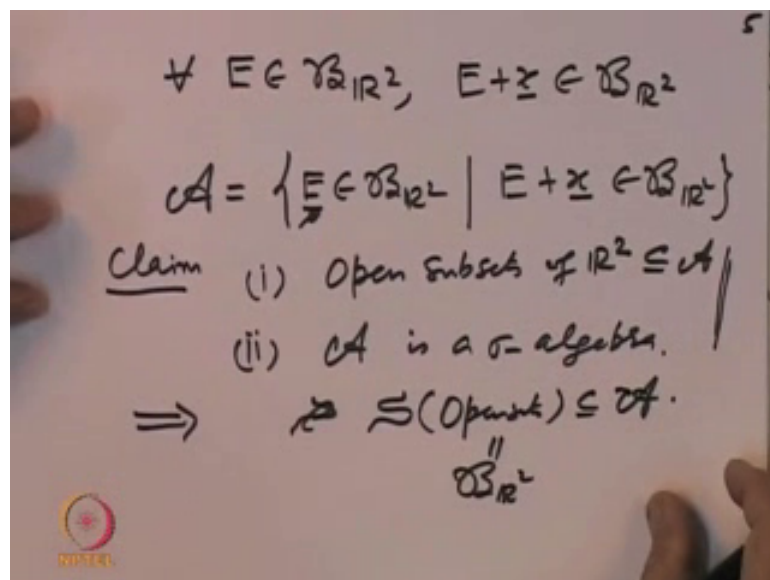 5
∀ E ∈ 𝓑ℝ², E + x ∈ 𝓑ℝ²
𝒜 = { E ∈ 𝓑ℝ² | E + x ∈ 𝓑ℝ² }
Claim (i) Open subsets of ℝ² ⊆ 𝒜
(ii) 𝒜 is a σ-algebra.
⟹ S(Open sets) ⊆ 𝒜.
||
𝓑ℝ²
NPTEL